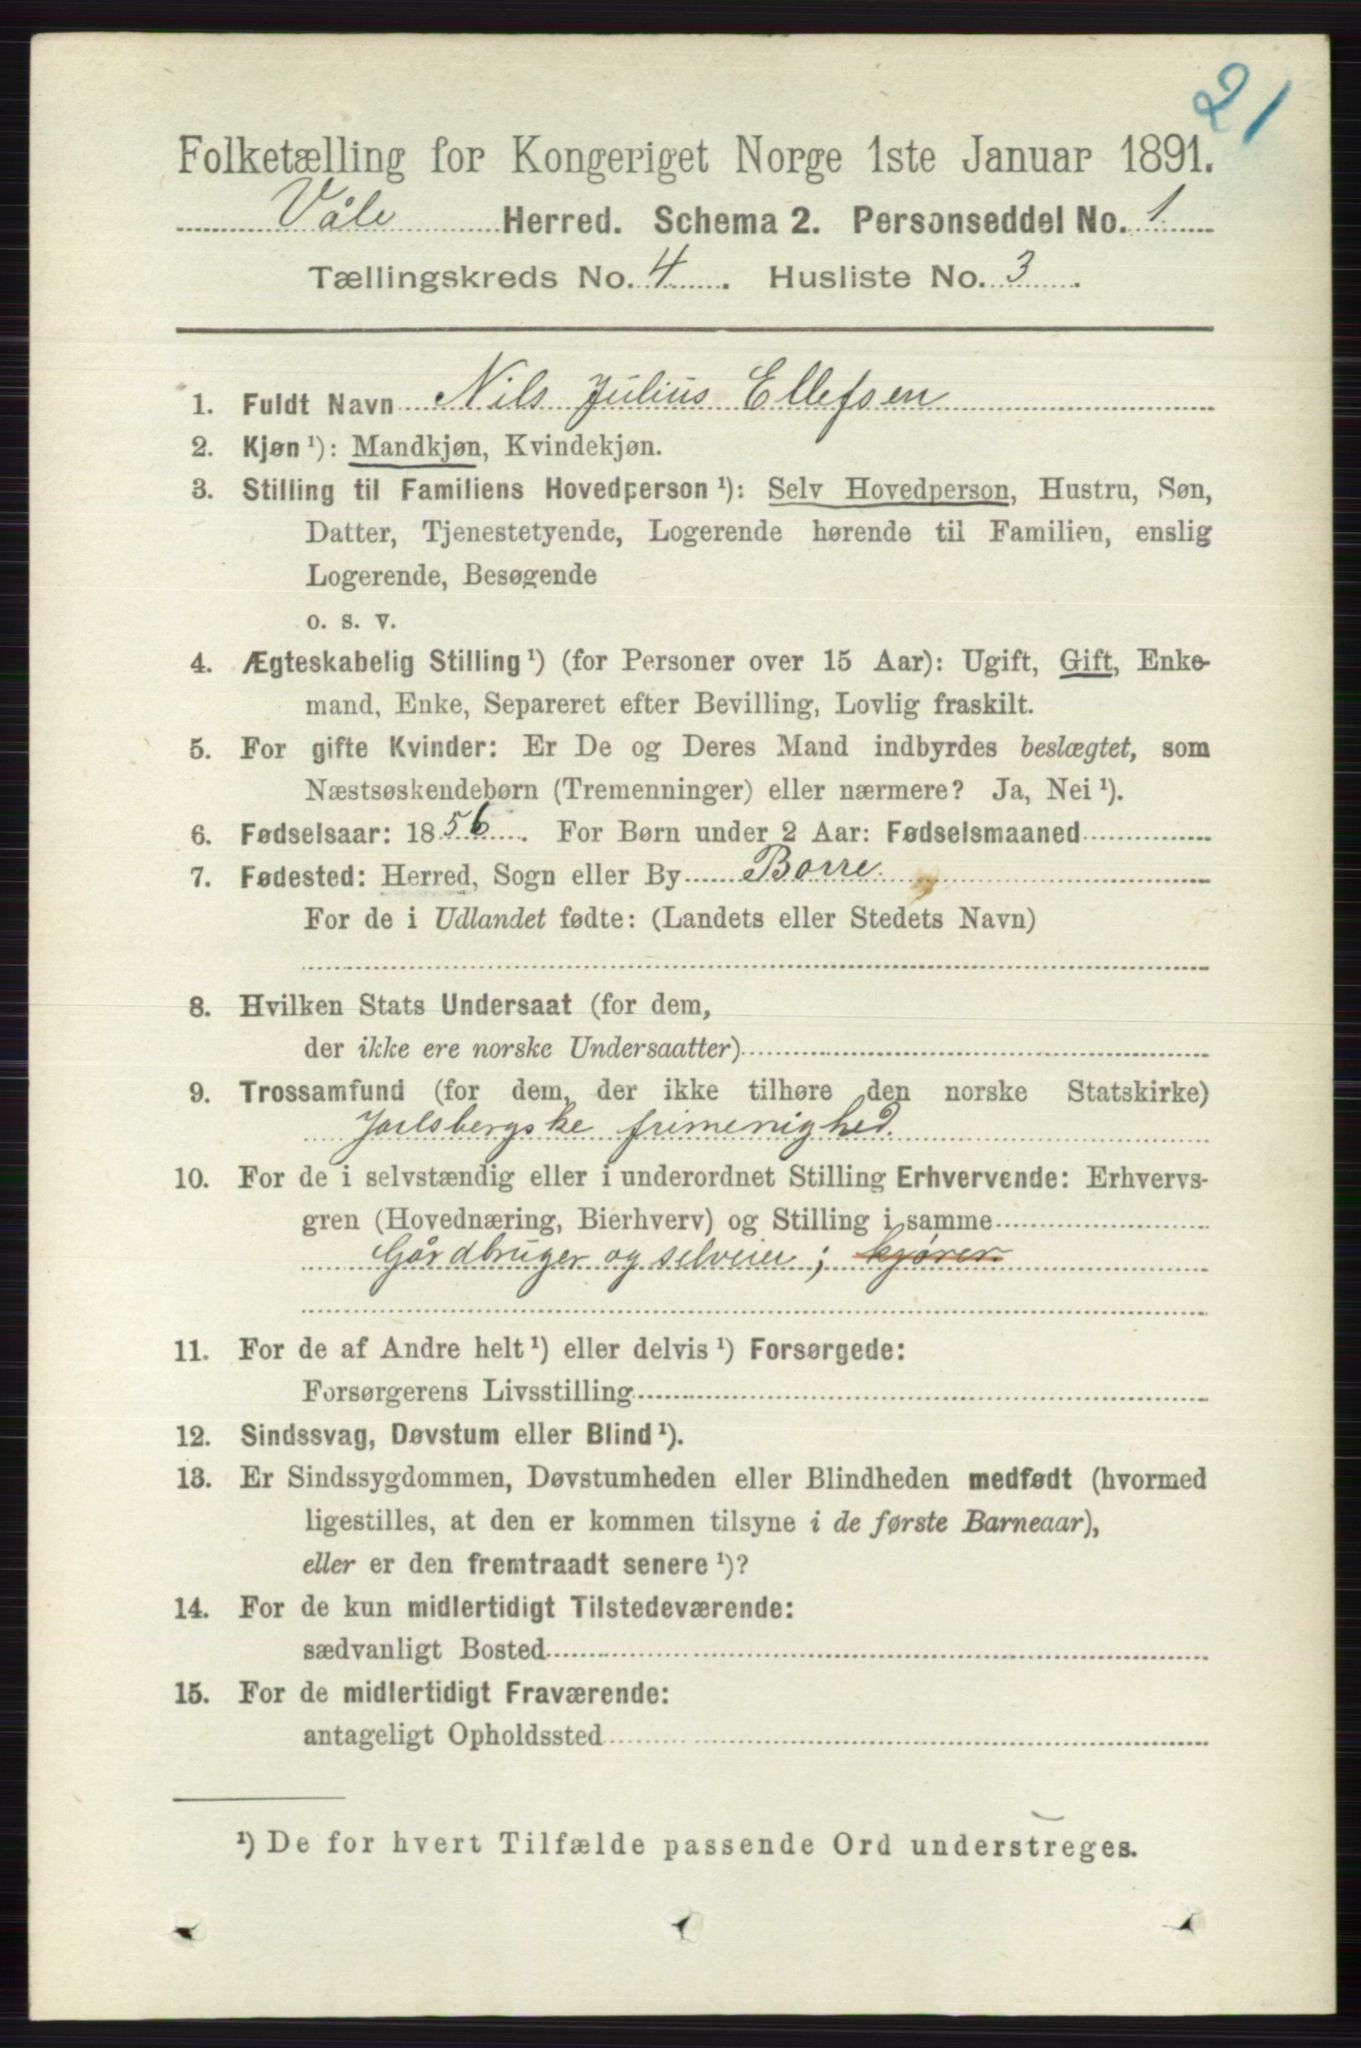 21
Folketælling for Kongeriget Norge 1ste Januar 1891.
Våle Herred. Schema 2. Personseddel No. 1
Tællingskreds No. 4. Husliste No. 3.
1. Fuldt Navn Nils Julius Ellefsen
2. Kjøn ¹): Mandkjøn, Kvindekjøn.
3. Stilling til Familiens Hovedperson ¹): Selv Hovedperson, Hustru, Søn,
Datter, Tjenestetyende, Logerende hørende til Familien, enslig
Logerende, Besøgende
o. s. v.
4. Ægteskabelig Stilling ¹) (for Personer over 15 Aar): Ugift, Gift, Enke-
mand, Enke, Separeret efter Bevilling, Lovlig fraskilt.
5. For gifte Kvinder: Er De og Deres Mand indbyrdes beslægtet, som
Næstsøskendebørn (Tremenninger) eller nærmere? Ja, Nei ¹).
6. Fødselsaar: 1856. For Børn under 2 Aar: Fødselsmaaned
7. Fødested: Herred, Sogn eller By Borre.
For de i Udlandet fødte: (Landets eller Stedets Navn)
8. Hvilken Stats Undersaat (for dem,
der ikke ere norske Undersaatter)
9. Trossamfund (for dem, der ikke tilhøre den norske Statskirke)
Jarlsbergske frimenighed.
10. For de i selvstændig eller i underordnet Stilling Erhvervende: Erhvervs-
gren (Hovednæring, Bierhverv) og Stilling i samme
Gårdbruger og selveier; kjører.
11. For de af Andre helt ¹) eller delvis ¹) Forsørgede:
Forsørgerens Livsstilling
12. Sindssvag, Døvstum eller Blind ¹).
13. Er Sindssygdommen, Døvstumheden eller Blindheden medfødt (hvormed
ligestilles, at den er kommen tilsyne i de første Barneaar),
eller er den fremtraadt senere ¹)?
14. For de kun midlertidigt Tilstedeværende:
sædvanligt Bosted
15. For de midlertidigt Fraværende:
antageligt Opholdssted
¹) De for hvert Tilfælde passende Ord understreges.